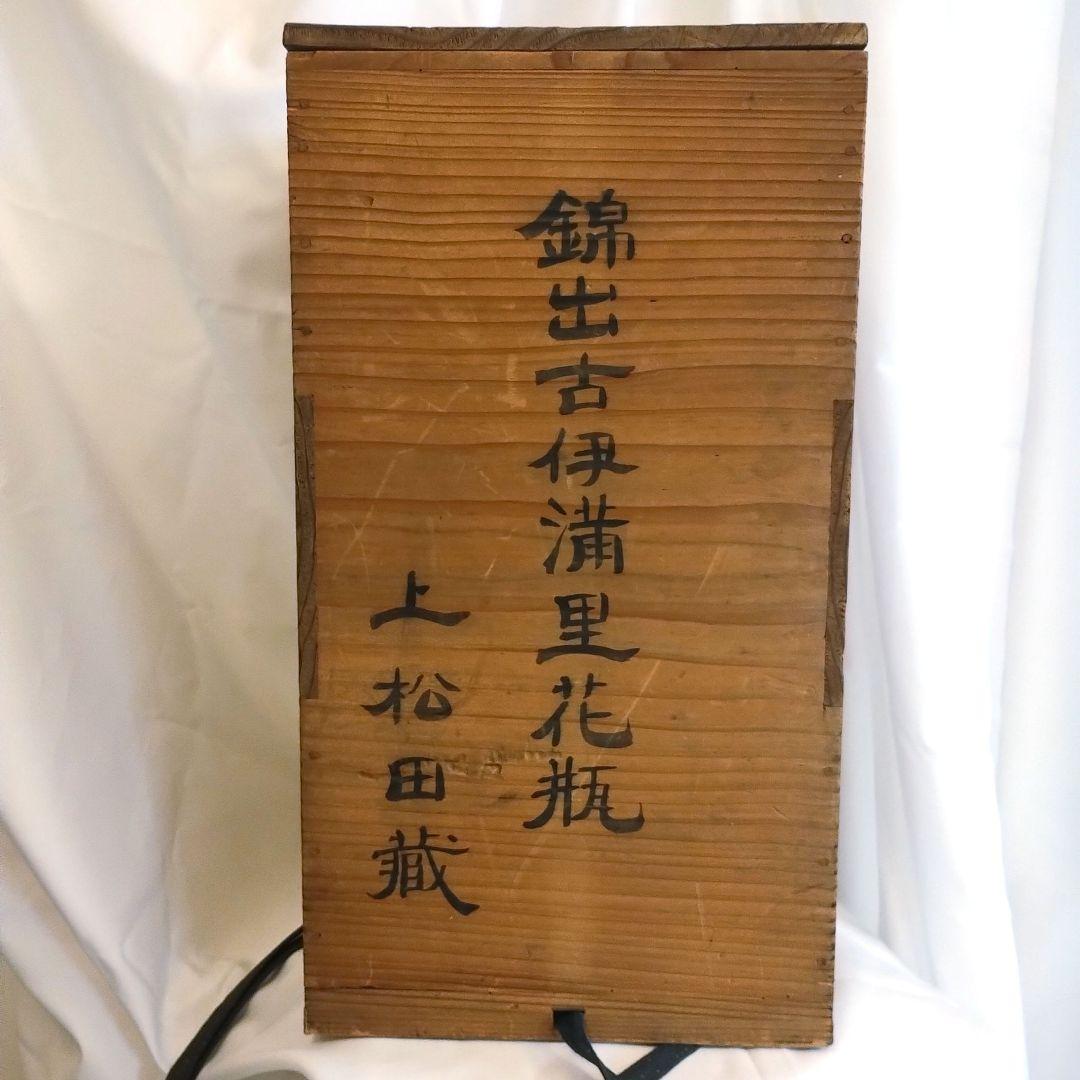 錦出古伊満里花瓶
上松田蔵